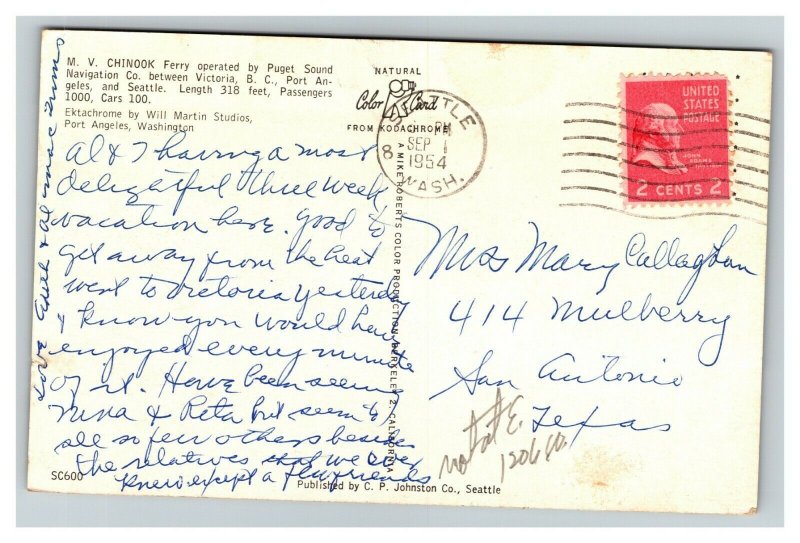 M. V. CHINOOK Ferry operated by Puget Sound
Navigation Co. between Victoria, B. C., Port An-
geles, and Seattle. Length 318 feet, Passengers
1000, Cars 100.
Ektachrome by Will Martin Studios,
Port Angeles, Washington
Al & I having a most
delightful three week
vacation here. Good to
get away from the heat
went to Victoria yesterday
& know you would have
enjoyed every minute
of it. Have been seeing
Nina & Reta but seem to
see so few others besides
the relatives that we ever
knew except a few friends
Love Edith & Al
SC600
NATURAL
Color Card
FROM KODACHROME
A MIKE ROBERTS COLOR PRODUCTION, BERKELEY 2, CALIFORNIA
Published by C. P. Johnston Co., Seattle
SEATTLE
8 PM
SEP 1
1954
WASH.
UNITED
STATES
POSTAGE
JOHN
ADAMS
2 CENTS 2
Miss Mary Callaghan
414 Mulberry
San Antonio
Texas
not at E.